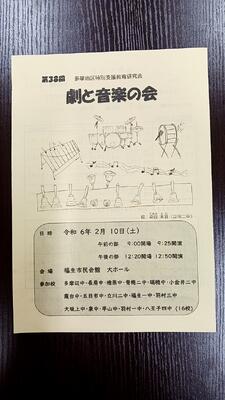 第38回
多摩地区特別支援教育研究会
劇と音楽の会
日時 令和 6年 2月 10日(土)
午前の部 9:00開場 9:25開演
午後の部 12:20開場 12:50開演
会場 福生市民会館 大ホール
参加校
霞台中・五日市中・立川二中・福生一中・羽村三中
大坂上中・泉中・平山中・羽村一中・八王子四中 (16校)